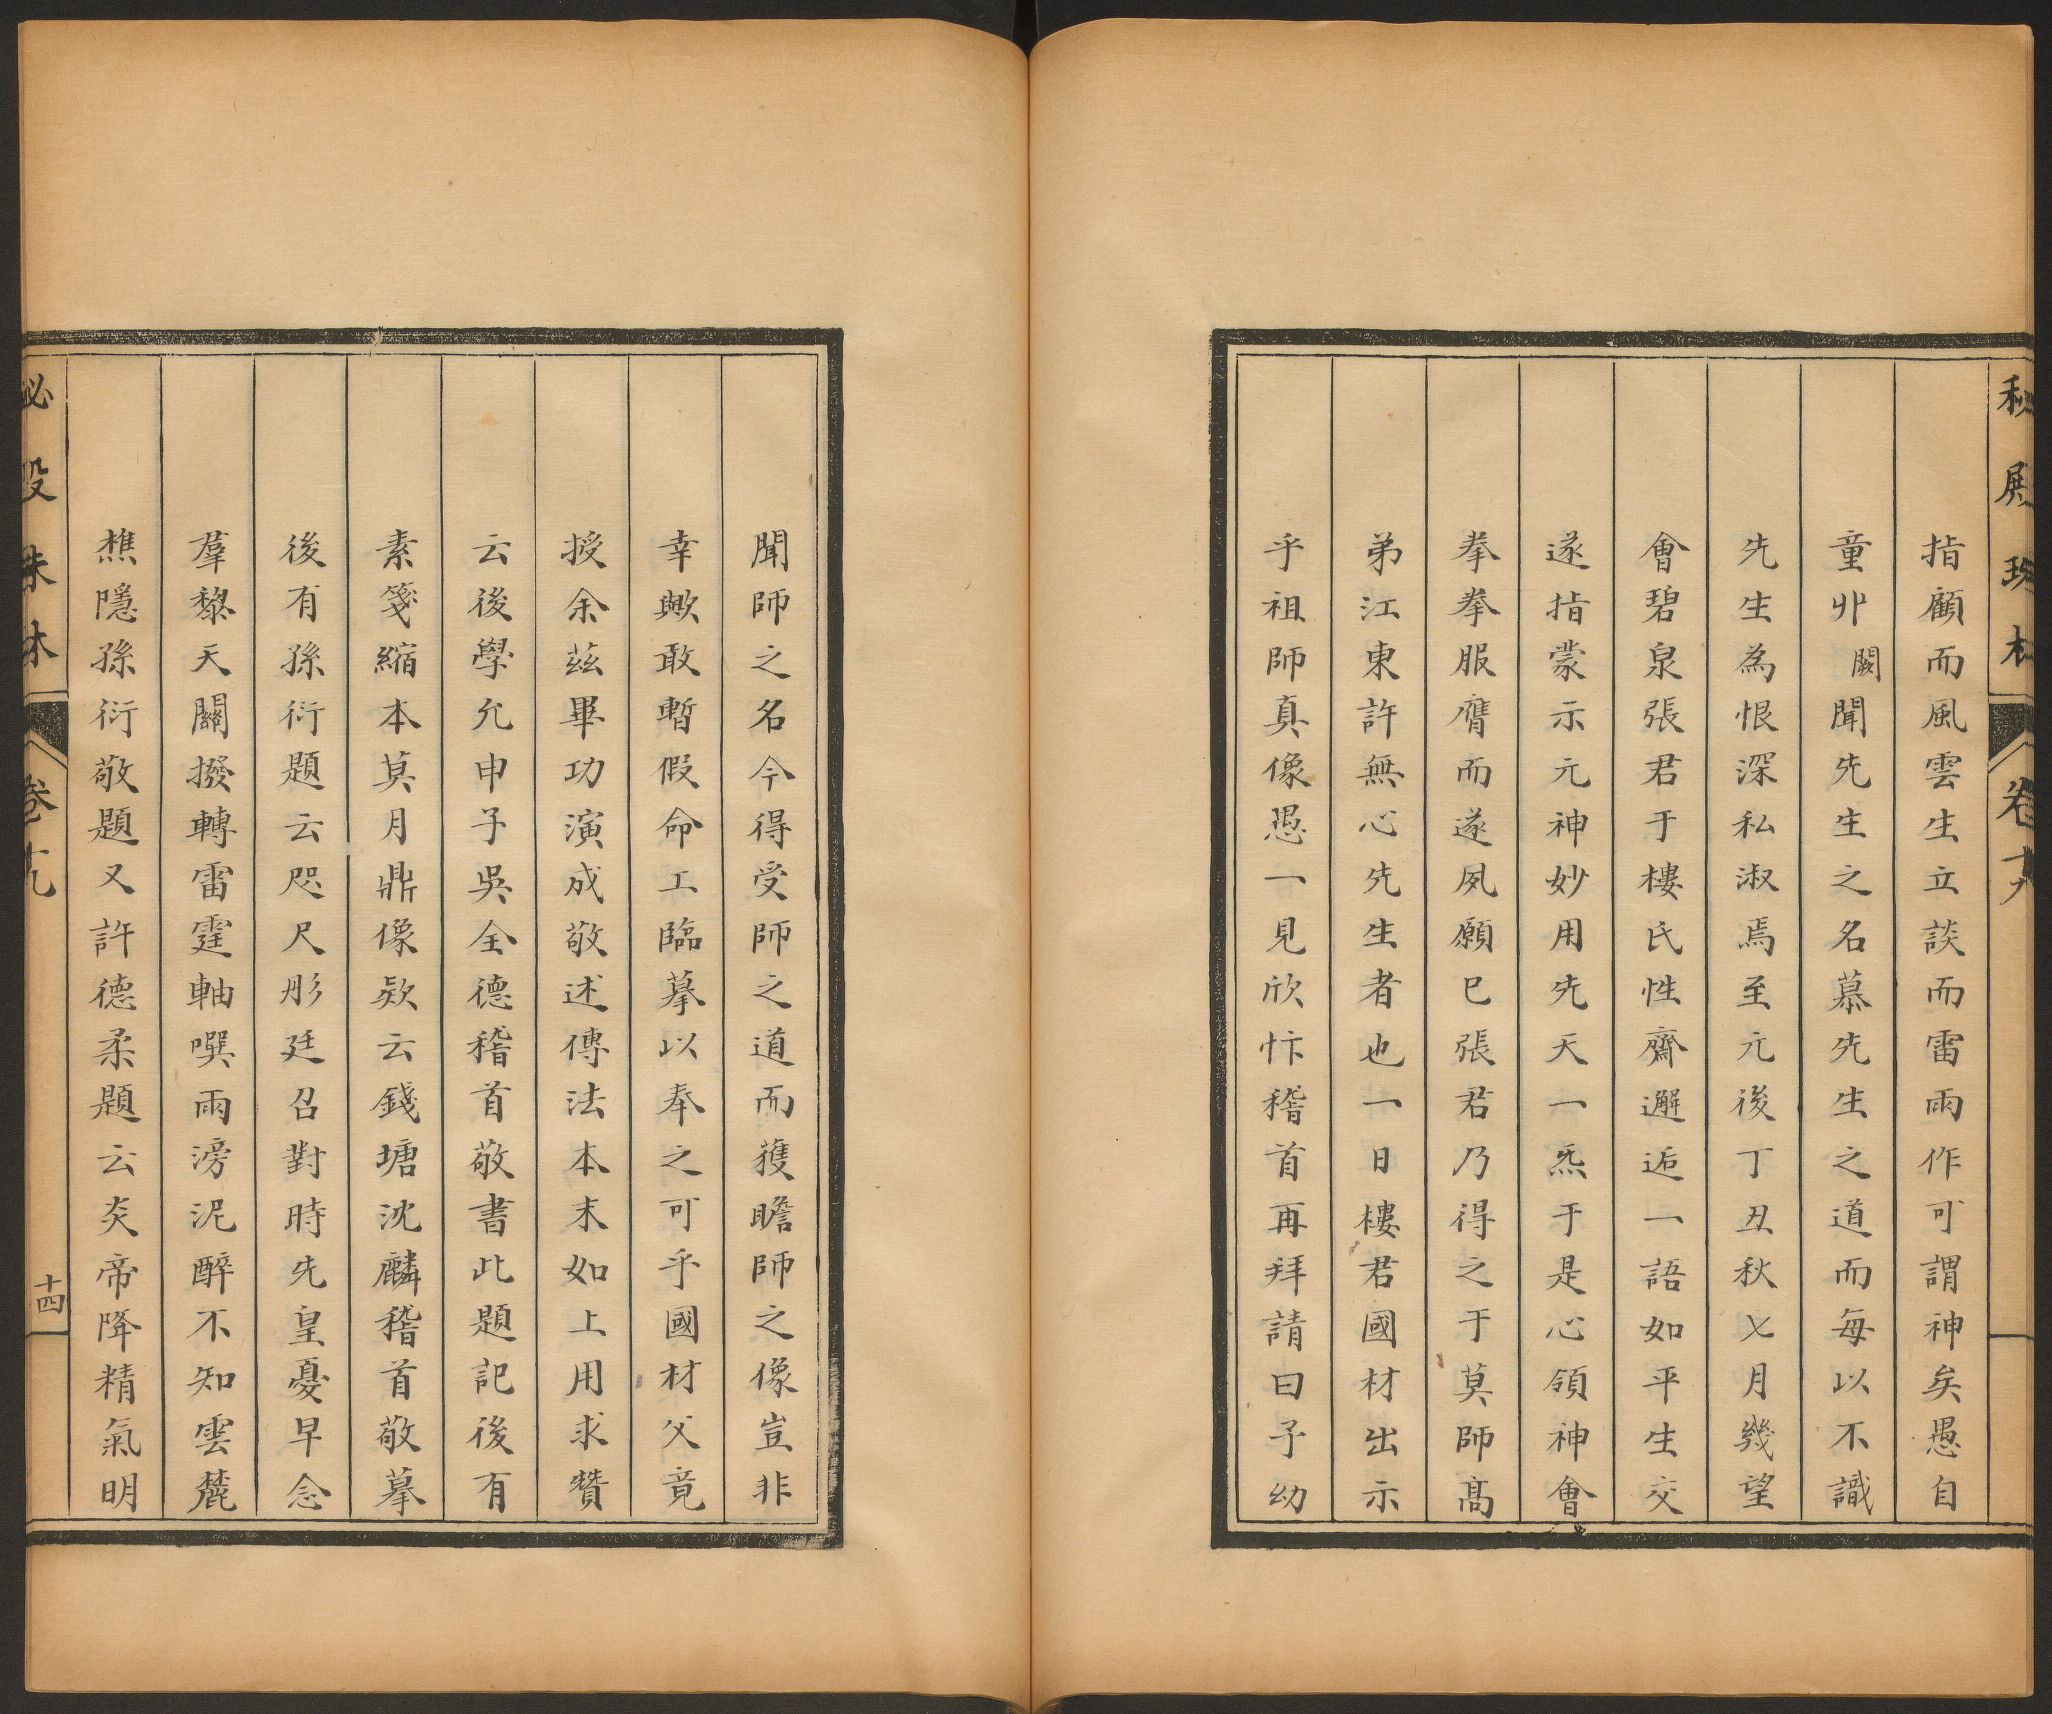 秘殿珠林 卷十九
指顧而風雲生立談而雷雨作可謂神矣愚自
童丱闕聞先生之名慕先生之道而每以不識
先生為恨深私淑焉至元後丁丑秋七月幾望
會碧泉張君于樓氏性齋邂逅一語如平生交
遂指蒙示元神妙用先天一炁于是心領神會
拳拳服膺而遂夙願已張君乃得之于莫師高
弟江東許無心先生者也一日樓君國材出示
乎祖師真像愚一見欣忭稽首再拜請曰予幼
聞師之名今得受師之道而獲瞻師之像豈非
幸歟敢暫假命工臨摹以奉之可乎國材父竟
授余茲畢功演成敬述傳法本末如上用求贊
云後學允中子吳全德稽首敬書此題記後有
素箋縮本莫月鼎像欵云錢塘沈麟稽首敬摹
後有孫衍題云咫尺彤廷召對時先皇憂旱念
羣黎天關撥轉雷霆軸噀雨滂泥醉不知雲麓
樵隱孫衍敬題又許德柔題云炎帝降精氣明
秘殿珠林 卷十九 十四